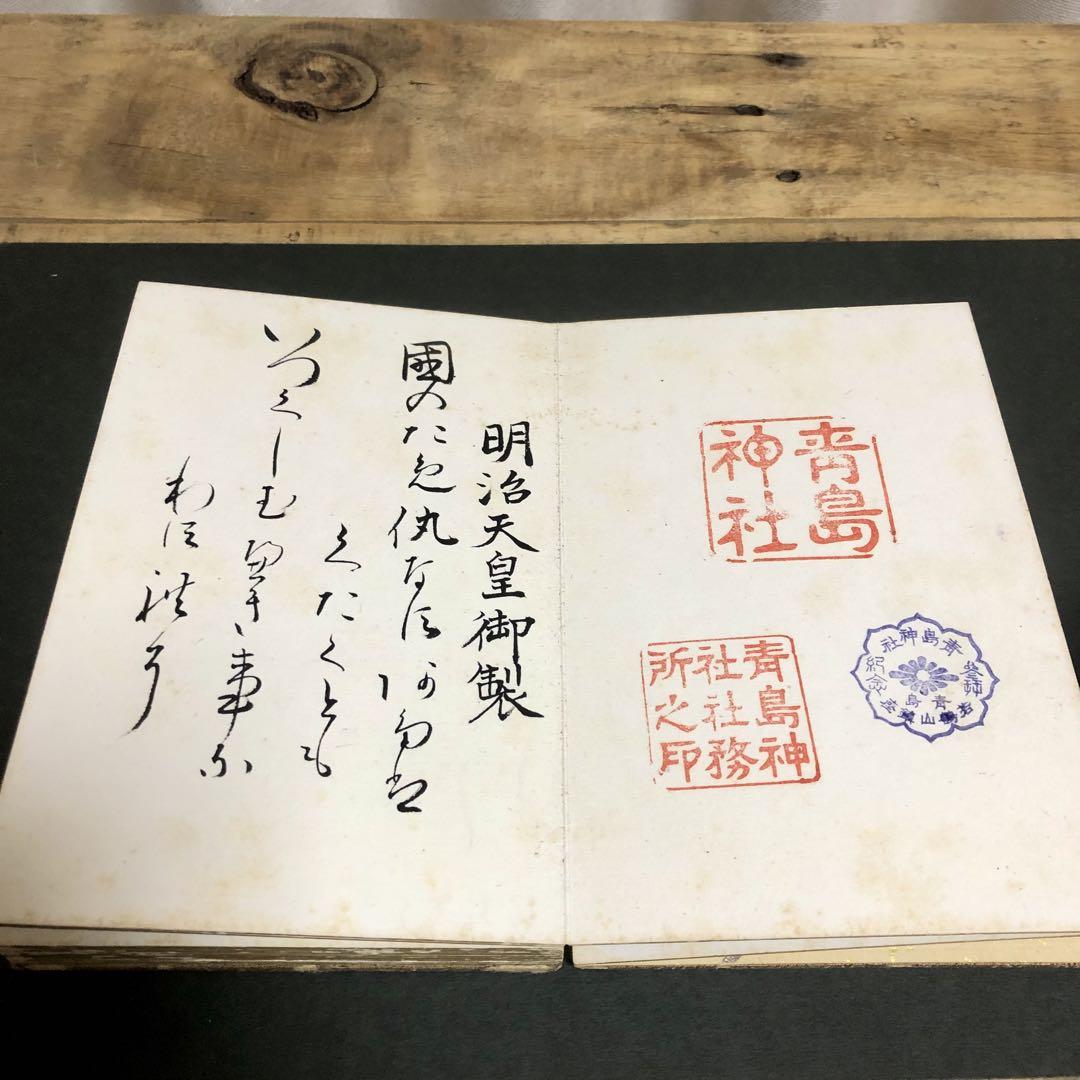 青島
神社
青島神社
参拝
紀念
青島
青島神
社社務
所之印
明治天皇御製
國のため仇なすあたは
くたくとも
いつくしむへき事な
わすれそ